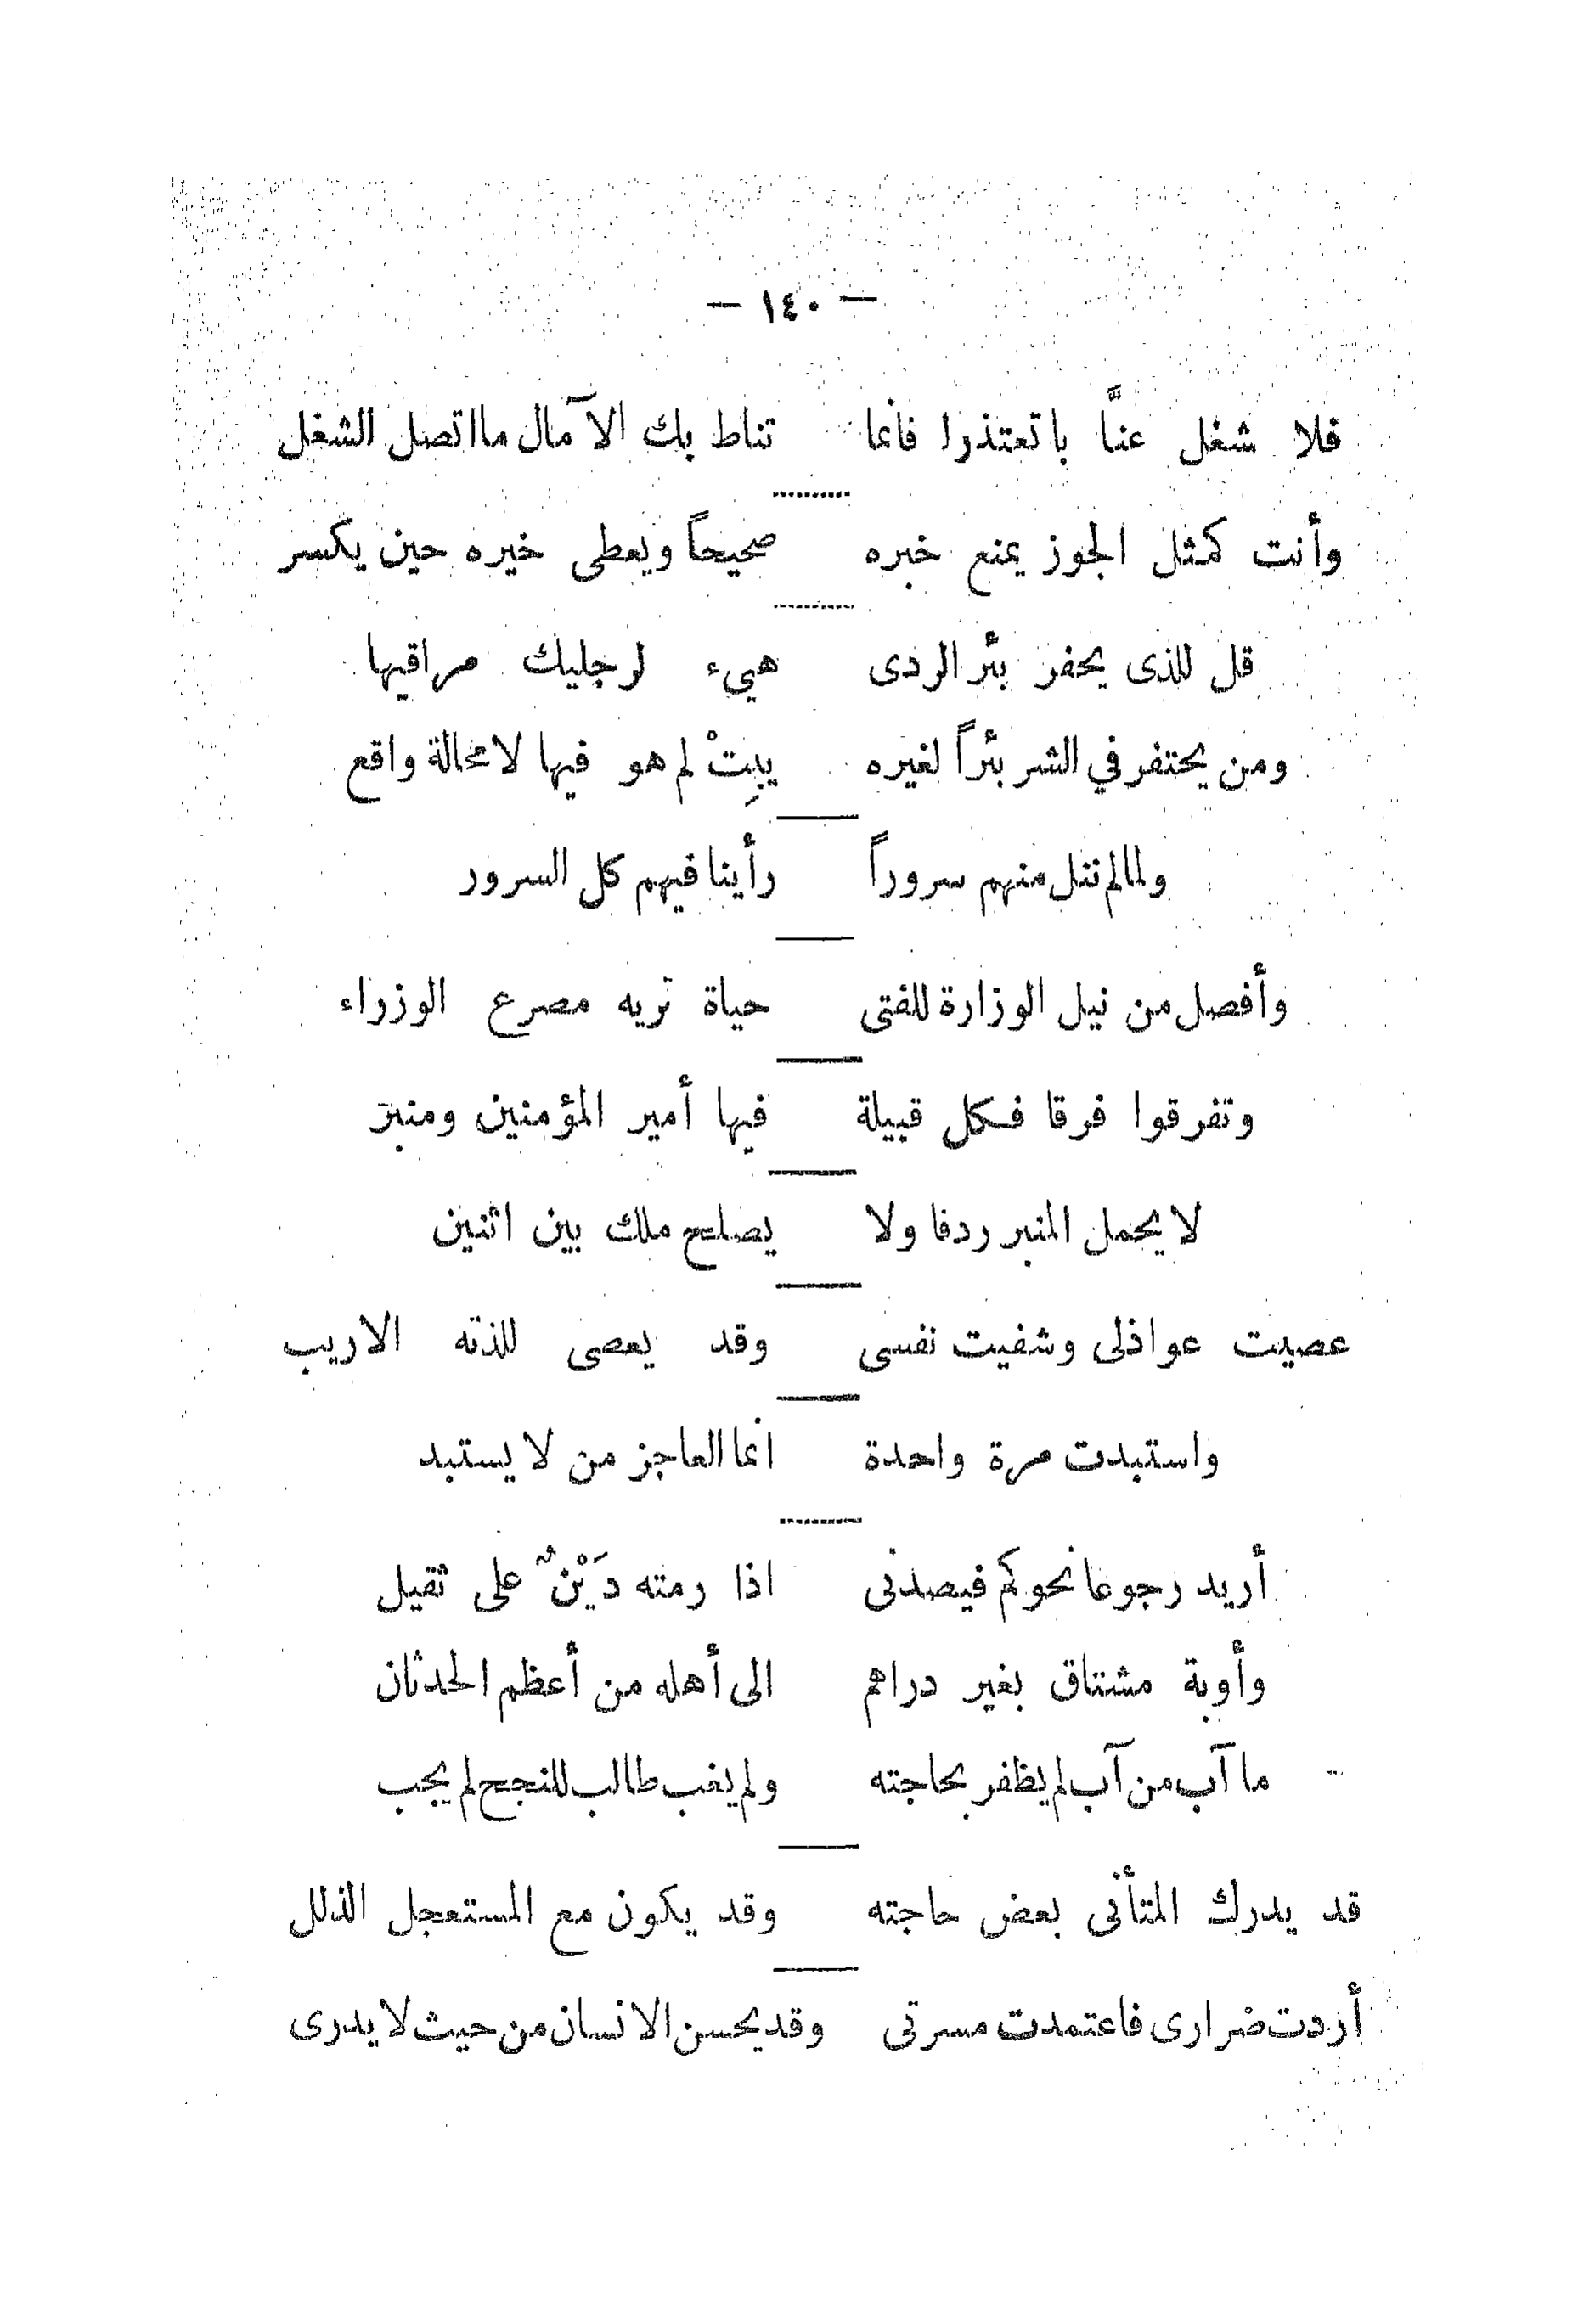 — ١٤٠ —
فلا شغل عنَّا باتعتذرا فانما تناط بك الآمال مااتصل الشغل
وأنت كمثل الجوز يمنع خبره صحيحاً ويعطى خيره حين يكسر
قل للذى يحفر بئر الردى هيء لرجليك مراقيها
ومن يحتفر في الشر بئراً لغيره يبِتْ لم هو فيها لا محالة واقع
ولما لم ننل منهم سروراً رأينا فيهم كل السرور
وأفضل من نيل الوزارة للفتى حياة تريه مصرع الوزراء
وتفرقوا فرقا فكل قبيلة فيها أمير المؤمنين ومنبر
لا يحمل المنبر ردفا ولا يصلح ملك بين اثنين
عصيت عواذلى وشفيت نفسى وقد يعصى للذته الاريب
واستبدت مرة واحدة انما العاجز من لا يستبد
أريد رجوعا نحوكم فيصدنى اذا رمته دَيْنٌ على ثقيل
وأوبة مشتاق بغير دراهم الى أهله من أعظم الحدثان
ما آب من آب لم يظفر بحاجته ولم يغب طالب للنجح لم يجب
قد يدرك المتأنى بعض حاجته وقد يكون مع المستعجل الذلل
أردت ضرارى فاعتمدت مسرتى وقد يحسن الانسان من حيث لا يدرى